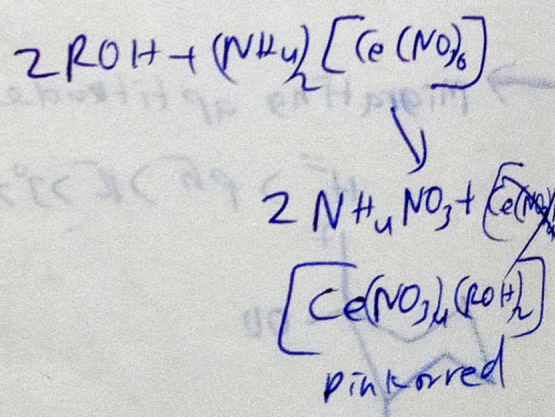 2ROH + (NH4)2 [Ce(NO3)6]
2NH4NO3 +
[Ce(NO3)4(ROH)2]
pink or red